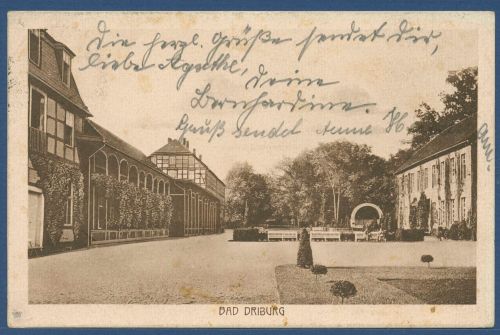 Die herzl. Grüße sendet Dir,
liebe Agathe,
Deine
Bernhardine.
Gruß sendet Anna H
BAD DRIBURG